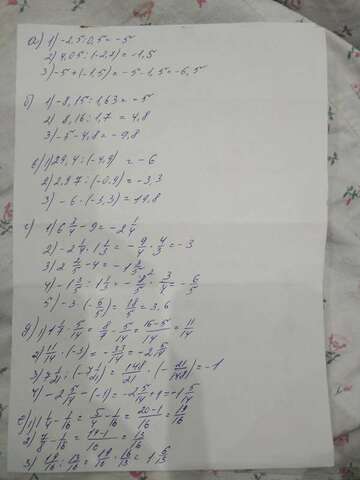 а) 1) -2,5:0,5=-5
2) 4,05:(-2,7)=-1,5
3) -5+(-1,5)=-5-1,5=-6,5
б) 1) -8,15:1,63=-5
2) 8,16:1,7=4,8
3) -5-4,8=-9,8
в) 1) 29,4:(-4,9)=-6
2) 2,97:(-0,9)=-3,3
3) -6·(-3,3)=19,8
г) 1) 6 3/4-9=-2 1/4
2) -2 1/4·1 1/3=-9/4·4/3=-3
3) 2 2/5-4=-1 3/5
4) -1 3/5:1 1/3=-8/5·3/4=-6/5
5) -3·(-6/5)=18/5=3,6
д) 1) 1 1/7-5/14=8/7-5/14=16-5/14=11/14
2) 11/14·(-3)=-33/14=-2 5/14
3) 7 1/21:(-7 1/21)=148/21·(-21/148)=-1
4) -2 5/14-(-1)=-2 5/14+1=-1 5/14
е) 1) 1 1/4-1/16=5/4-1/16=20-1/16=19/16
2) 7/8-1/16=14-1/16=13/16
3) 19/16:13/16=19/16·16/13=1 6/13